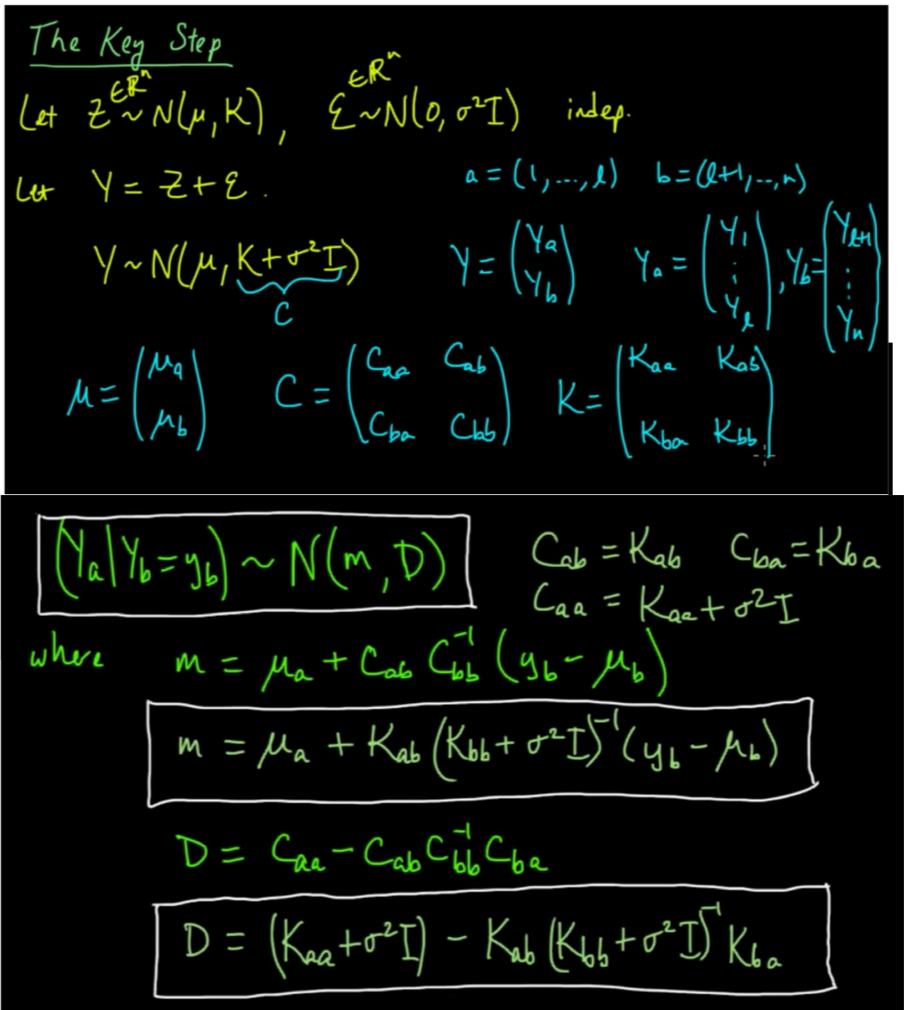 The Key Step
Let Z ∈ℝⁿ ~ N(μ, K), ε ∈ℝⁿ ~ N(0, σ²I) indep.
Let Y = Z + ε.
a = (1, ..., l) b = (l+1, .., n)
Y ~ N(μ, K + σ²I)
C
Y = (Y_a Y_b) Y_a = (Y_1 ⋮ Y_l), Y_b = (Y_{l+1} ⋮ Y_n)
μ = (μ_a μ_b) C = (C_aa C_ab C_ba C_bb) K = (K_aa K_ab K_ba K_bb)
(Y_a | Y_b = y_b) ~ N(m, D)
C_ab = K_ab C_ba = K_ba
C_aa = K_aa + σ²I
where m = μ_a + C_ab C_bb⁻¹ (y_b - μ_b)
m = μ_a + K_ab (K_bb + σ²I)⁻¹ (y_b - μ_b)
D = C_aa - C_ab C_bb⁻¹ C_ba
D = (K_aa + σ²I) - K_ab (K_bb + σ²I)⁻¹ K_ba